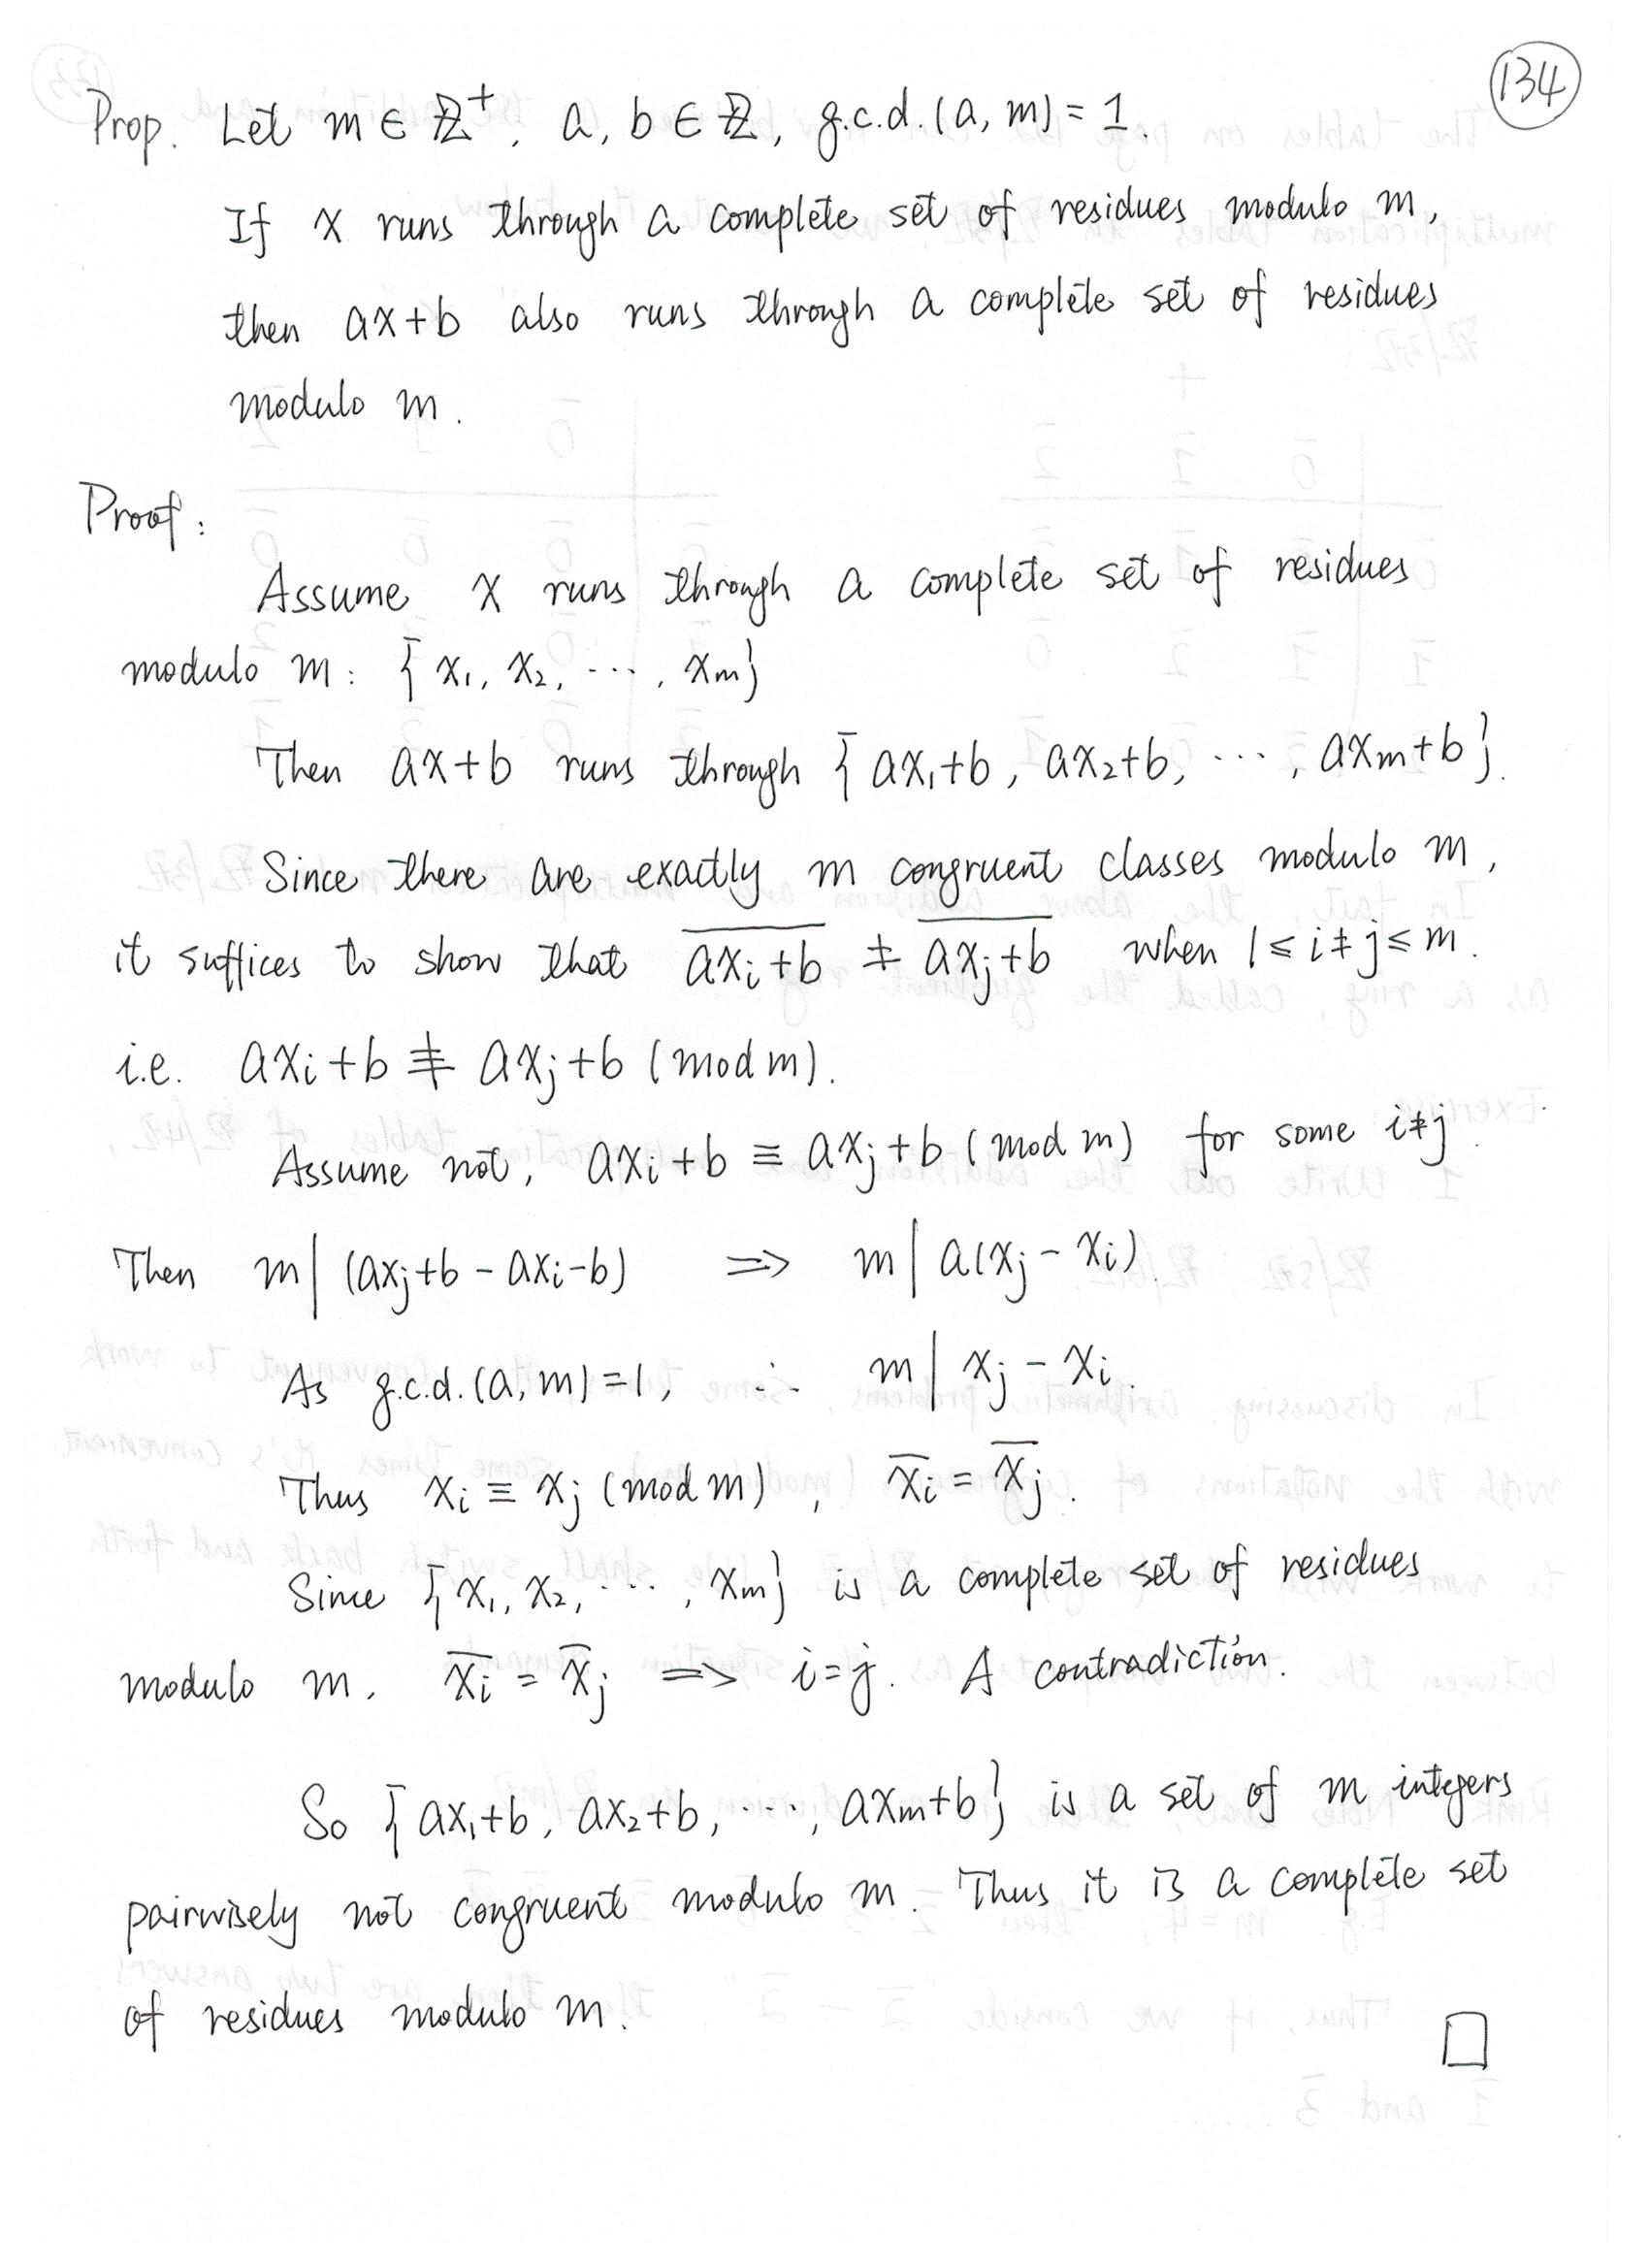 134
Prop. Let m ∈ ℤ⁺, a, b ∈ ℤ, g.c.d.(a, m) = 1.
If x runs through a complete set of residues modulo m,
then ax+b also runs through a complete set of residues
modulo m.
Proof:
Assume x runs through a complete set of residues
modulo m: {x₁, x₂, ⋯, xₘ}
Then ax+b runs through {ax₁+b, ax₂+b, ⋯, axₘ+b}.
Since there are exactly m congruent classes modulo m,
it suffices to show that \overline{axᵢ+b} ≠ \overline{axⱼ+b} when 1 ≤ i ≠ j ≤ m.
i.e. axᵢ+b ≢ axⱼ+b (mod m).
Assume not, axᵢ+b ≡ axⱼ+b (mod m) for some i≠j.
Then m | (axⱼ+b - axᵢ-b) ⇒ m | a(xⱼ - xᵢ).
As g.c.d.(a, m)=1, ∴ m | xⱼ - xᵢ.
Thus xᵢ ≡ xⱼ (mod m), \overline{xᵢ} = \overline{xⱼ}.
Since {x₁, x₂, ⋯, xₘ} is a complete set of residues
modulo m, \overline{xᵢ} = \overline{xⱼ} ⇒ i=j. A contradiction.
So {ax₁+b, ax₂+b, ⋯, axₘ+b} is a set of m integers
pairwisely not congruent modulo m. Thus it is a complete set
of residues modulo m.
□